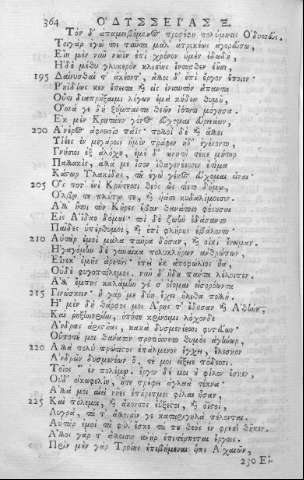 364 ὈΔΥΣΣΕΙΑΣ Ξ
Τὸν δ' ἀπαμειβόμενος προσέφη πολύμητις Ὀδυσσεύς.
Τοιγὰρ ἐγώ τοι ταῦτα μάλ' ἀτρεκέως ἀγορεύσω,
Εἴη μὲν νῦν νῶϊν ἐπὶ χρόνον ἠμὲν ἐδωδὴ
Ἠδὲ μέθυ γλυκερὸν κλισίης ἔντοσθεν ἐοῦσι
195 Δαίνυσθαι τ' ἀκέοντ', ἄλλοι δ' ἐπὶ ἔργον ἕποιεν·
Ῥηϊδίως κεν ἔπειτα καὶ εἰς ἐνιαυτὸν ἅπαντα
Οὔτι διαπρήξαιμι λέγων ἐμὰ κήδεα θυμοῦ,
Ὅσσα γε δὴ ξύμπαντα θεῶν ἰότητι μόγησα.
Ἐκ μὲν Κρητάων γένος εὔχομαι εὐρειάων,
200 Ἀνέρος ἀφνειοῖο πάϊς· πολλοὶ δὲ καὶ ἄλλοι
Υἷες ἐν μεγάρῳ ἠμὲν τράφεν ἠδ' ἐγένοντο
Γνήσιοι ἐξ ἀλόχου, ἐμὲ δ' ὠνητὴ τέκε μήτηρ
Παλλακὶς, ἀλλά με ἶσον ἰθαιγενέεσσιν ἐτίμα
Κάστωρ Ὑλακίδης, τοῦ ἐγὼ γένος εὔχομαι εἶναι·
205 Ὅς ποτ' ἐνὶ Κρήτεσσι θεὸς ὣς τίετο δήμῳ,
Ὄλβῳ τε πλούτῳ τε, καὶ υἱάσι κυδαλίμοισιν.
Ἀλλ' ἤτοι τὸν Κῆρες ἔβαν θανάτοιο φέρουσαι
Εἰς Ἀΐδαο δόμους· τοὶ δὲ ζωὴν ἐδάσαντο
Παῖδες ὑπέρθυμοι, καὶ ἐπὶ κλήρους ἐβάλοντο.
210 Αὐτὰρ ἐμοὶ μάλα παῦρα δόσαν, καὶ οἰκί' ἔνειμαν.
Ἠγαγόμην δὲ γυναῖκα πολυκλήρων ἀνθρώπων,
Εἵνεκ' ἐμῆς ἀρετῆς· ἐπεὶ οὐκ ἀποφώλιος ἦα,
Οὐδὲ φυγοπτόλεμος. νῦν δ' ἤδη πάντα λέλοιπεν·
Ἀλλ' ἔμπης καλάμην γέ σ' ὀΐομαι εἰσορόωντα
215 Γινώσκειν· ἦ γάρ με δύη ἔχει ἤλιθα πολλή.
Ἦ μὲν δὴ θάρσος μοι Ἄρης τ' ἔδοσαν καὶ Ἀθήνη,
Καὶ ῥηξηνορίην, ὁπότε κρίνοιμι λόχονδε
Ἄνδρας ἀριστῆας, κακὰ δυσμενέεσσι φυτεύων·
Οὔποτέ μοι θάνατον προτιόσσετο θυμὸς ἀγήνωρ,
220 Ἀλλὰ πολὺ πρώτιστος ἐπάλμενος ἔγχει, ἕλεσκον
Ἀνδρῶν δυσμενέων ὅ, τέ μοι εἴξειε πόδεσσιν.
Τοῖος ἔ' ἐν πολέμῳ. ἔργον δέ μοι οὐ φίλον ἔσκεν,
Οὐδ' οἰκωφελίη, ἥτε τρέφει ἀγλαὰ τέκνα·
Ἀλλά μοι αἰεὶ νῆες ἐπήρετμοι φίλαι ἦσαν,
225 Καὶ πόλεμοι, καὶ ἄκοντες ἐΰξεστοι, καὶ ὀϊστοί,
Λυγρὰ, τά τ' ἄλλοισίν γε καταριγηλὰ πέλονται.
Αὐτὰρ ἐμοὶ τὰ φίλ' ἔσκε τά που θεὸς ἐν φρεσὶ θῆκεν.
Ἄλλος γάρ τ' ἄλλοισιν ἀνὴρ ἐπιτέρπεται ἔργοις.
Πρὶν μὲν γὰρ Τροίης ἐπιβήμεναι υἷας Ἀχαιῶν,
230 Εἰ-